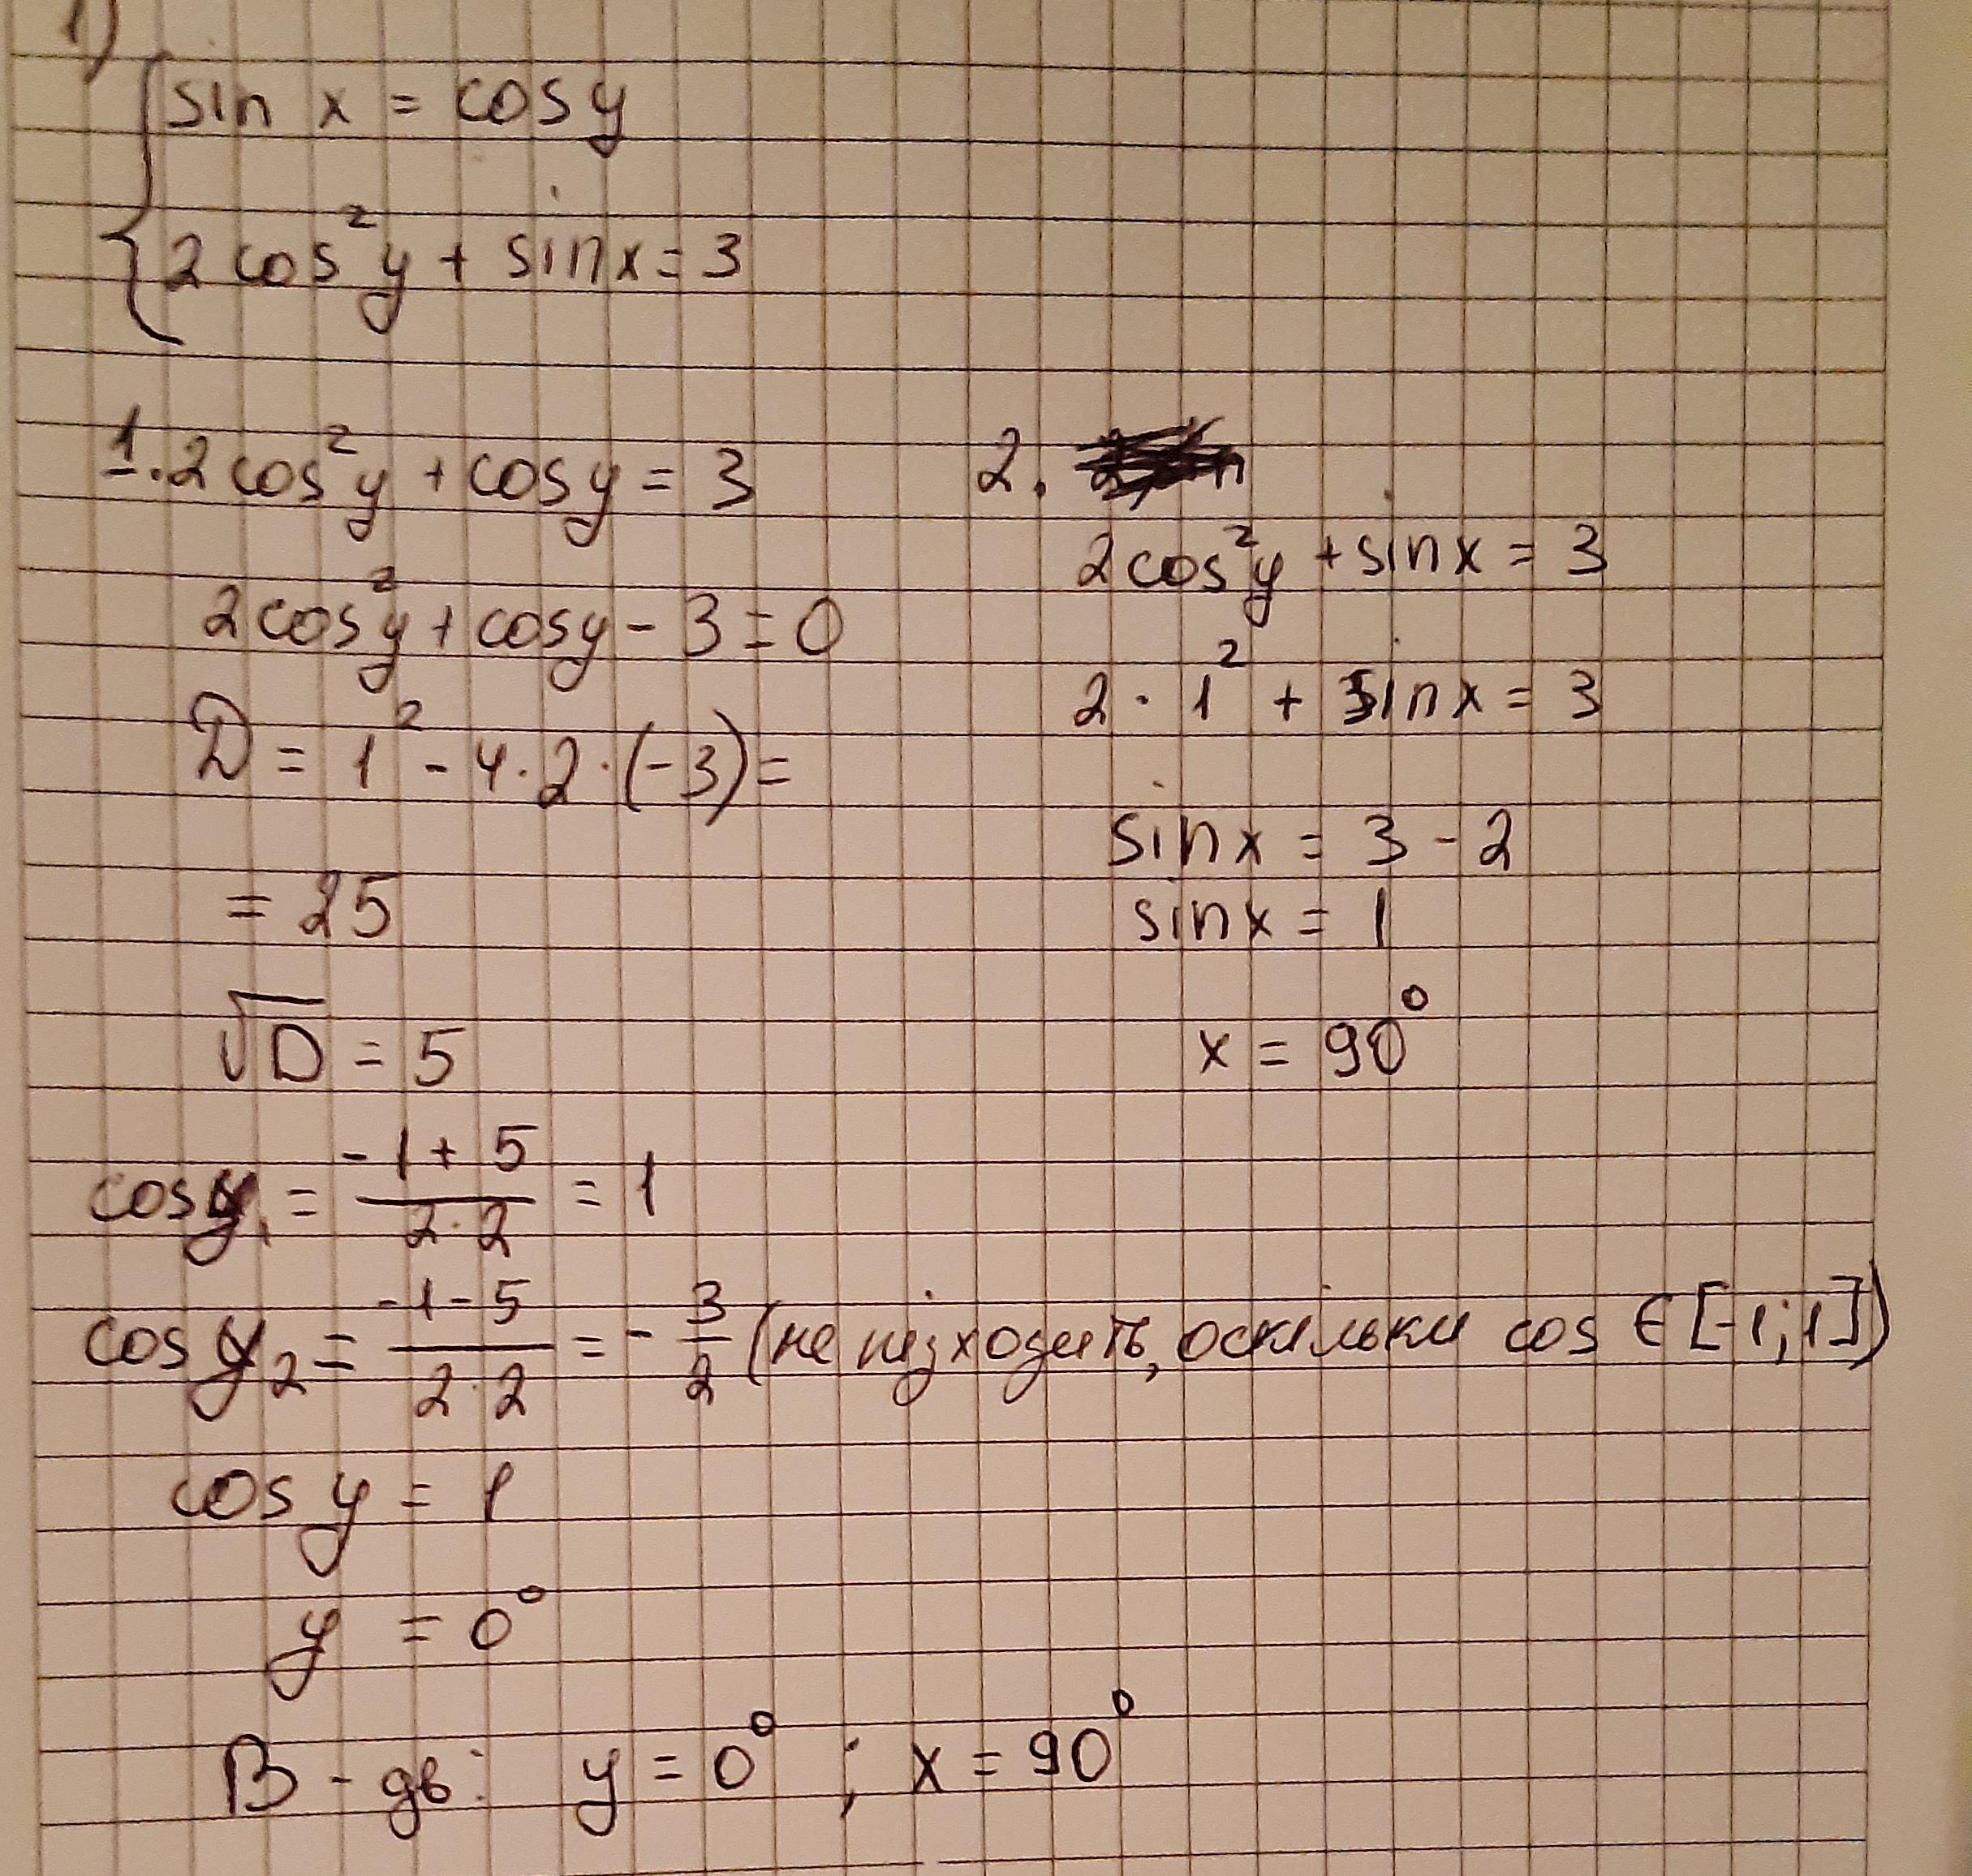 1)
sin x = cos y
2 cos² y + sin x = 3
1. 2 cos² y + cos y = 3
2 cos² y + cos y - 3 = 0
D = 1² - 4 · 2 · (-3) =
= 25
√D = 5
cos y₁ = (-1 + 5)/(2·2) = 1
cos y₂ = (-1 - 5)/(2·2) = - 3/2 (не підходить, оскільки cos ∈ [-1; 1])
cos y = 1
y = 0°
2.
2 cos² y + sin x = 3
2 · 1² + sin x = 3
sin x = 3 - 2
sin x = 1
x = 90°
В-дь: y = 0° ; x = 90°